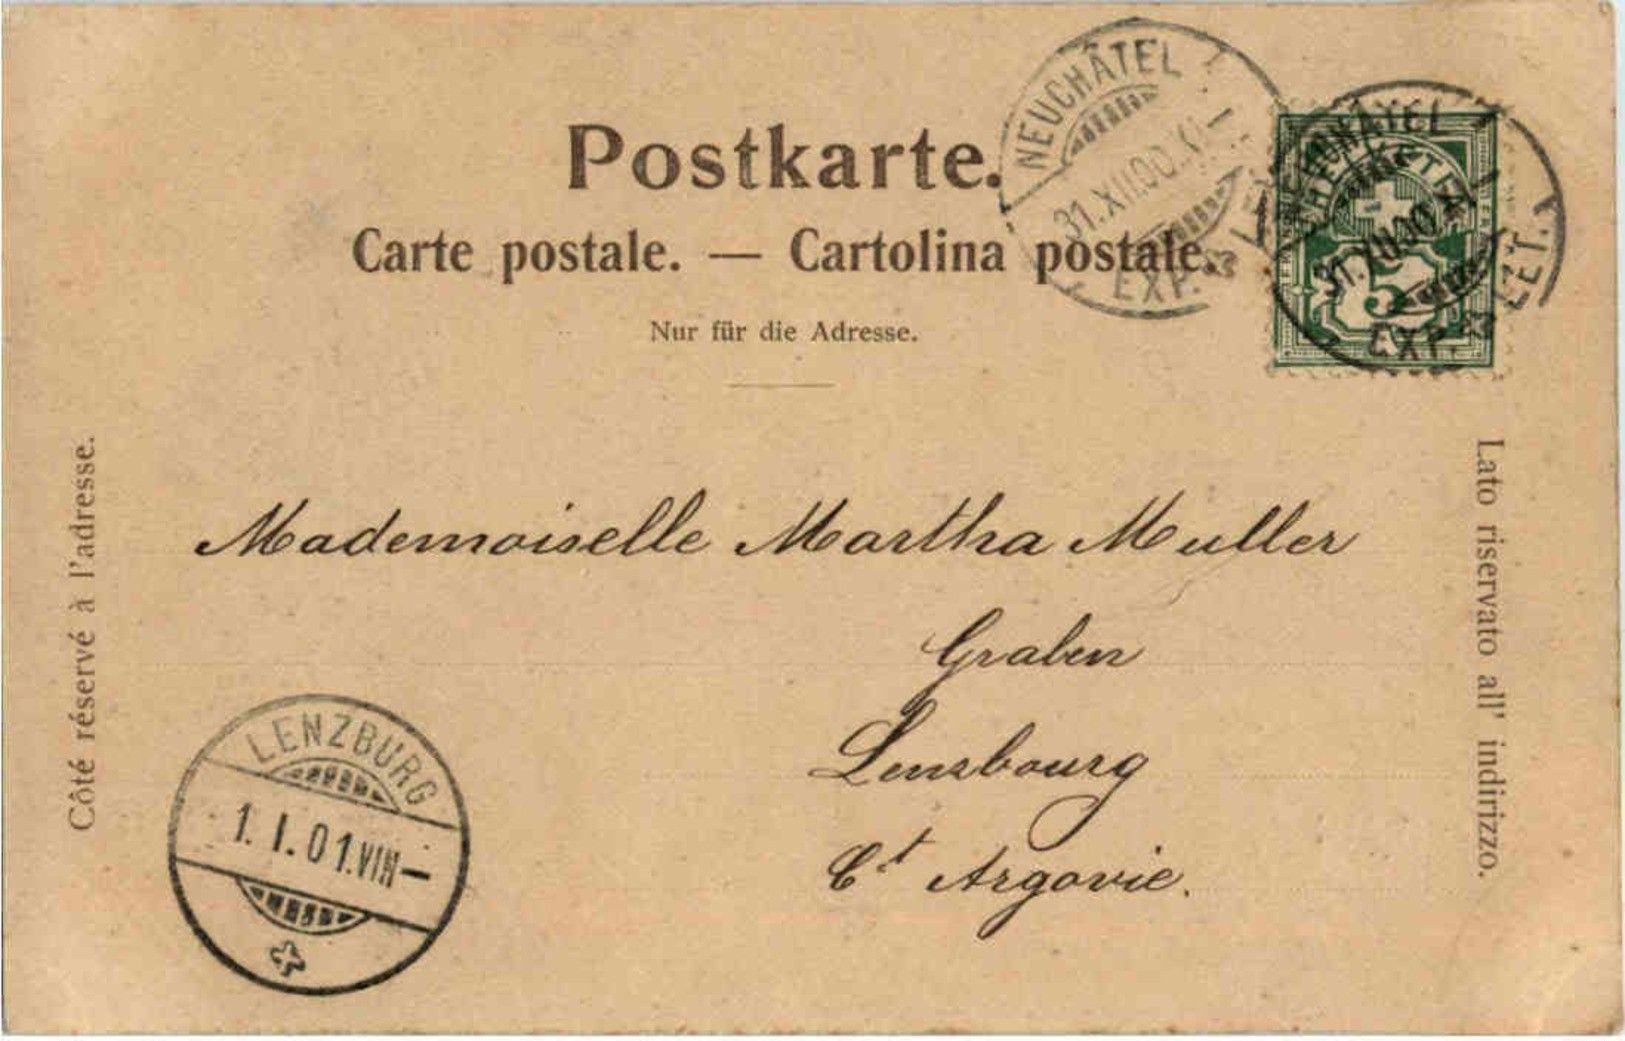 Postkarte.
Carte postale. — Cartolina postale.
Nur für die Adresse.
NEUCHÂTEL
31.XII.00.XI–
EXP. LET.
NEUCHÂTEL
31.XII.00.XI
EXP. LET.
HELVETIA
5
Côté réservé à l'adresse.
Lato riservato all' indirizzo.
Mademoiselle Martha Muller
Graben
Lenzbourg
Ct Argovie.
LENZBURG
1.I.01.VIII–